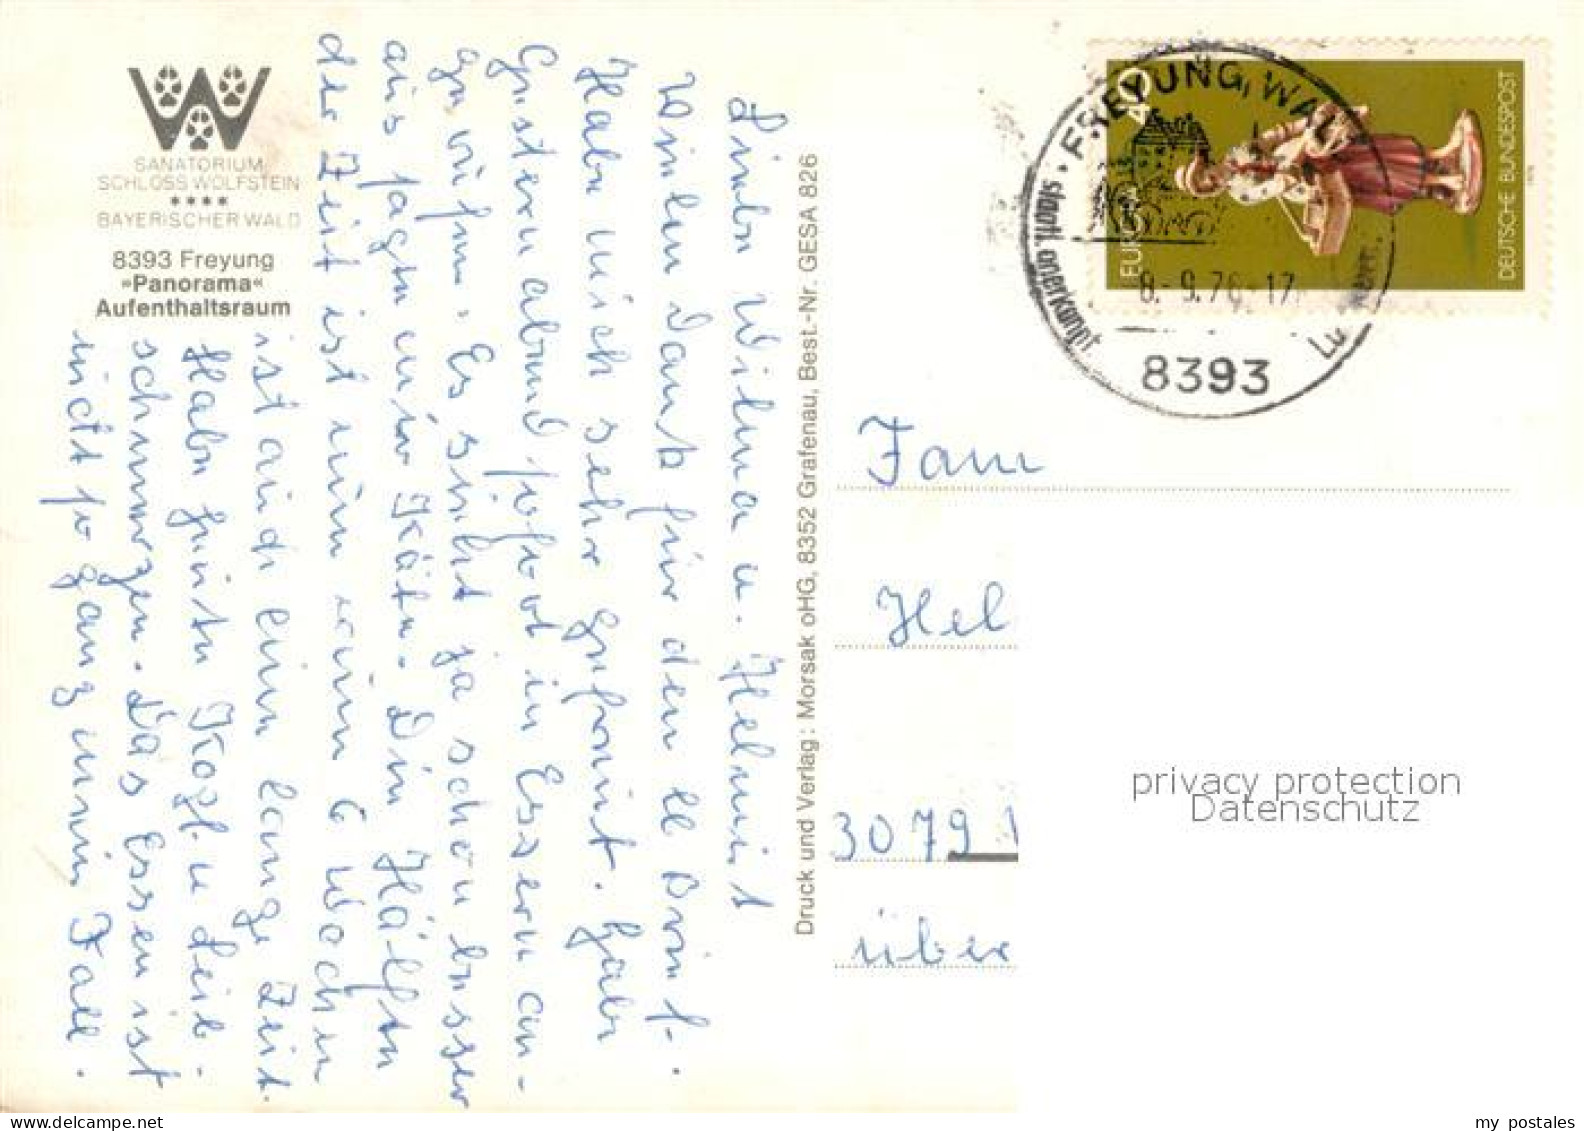 SANATORIUM
SCHLOSS WOLFSTEIN
****
BAYERISCHER WALD
8393 Freyung
»Panorama«
Aufenthaltsraum
Liebe Wilma u. Helmut
Vielen Dank für den lb Brief.
Habe mich sehr gefreut. Habe
Gestern abend sofort in Essern an-
gerufen. Es sieht ja schon besser
aus sagte mir Käte. Die Hälfte
der Zeit ist nun rum 6 Wochen
ist auch eine lange Zeit.
Habe heute Kopf u Leib-
schmerzen. Das Essen ist
nicht so ganz mein Fall.
Druck und Verlag: Morsak oHG, 8352 Grafenau, Best.-Nr. GESA 826
FREYUNG, WALD
staatl. anerkannt
8.-9.76-17
8393
40
EUROPA
DEUTSCHE BUNDESPOST
1976
Fam
Hel
3079
über
privacy protection
Datenschutz
my postales